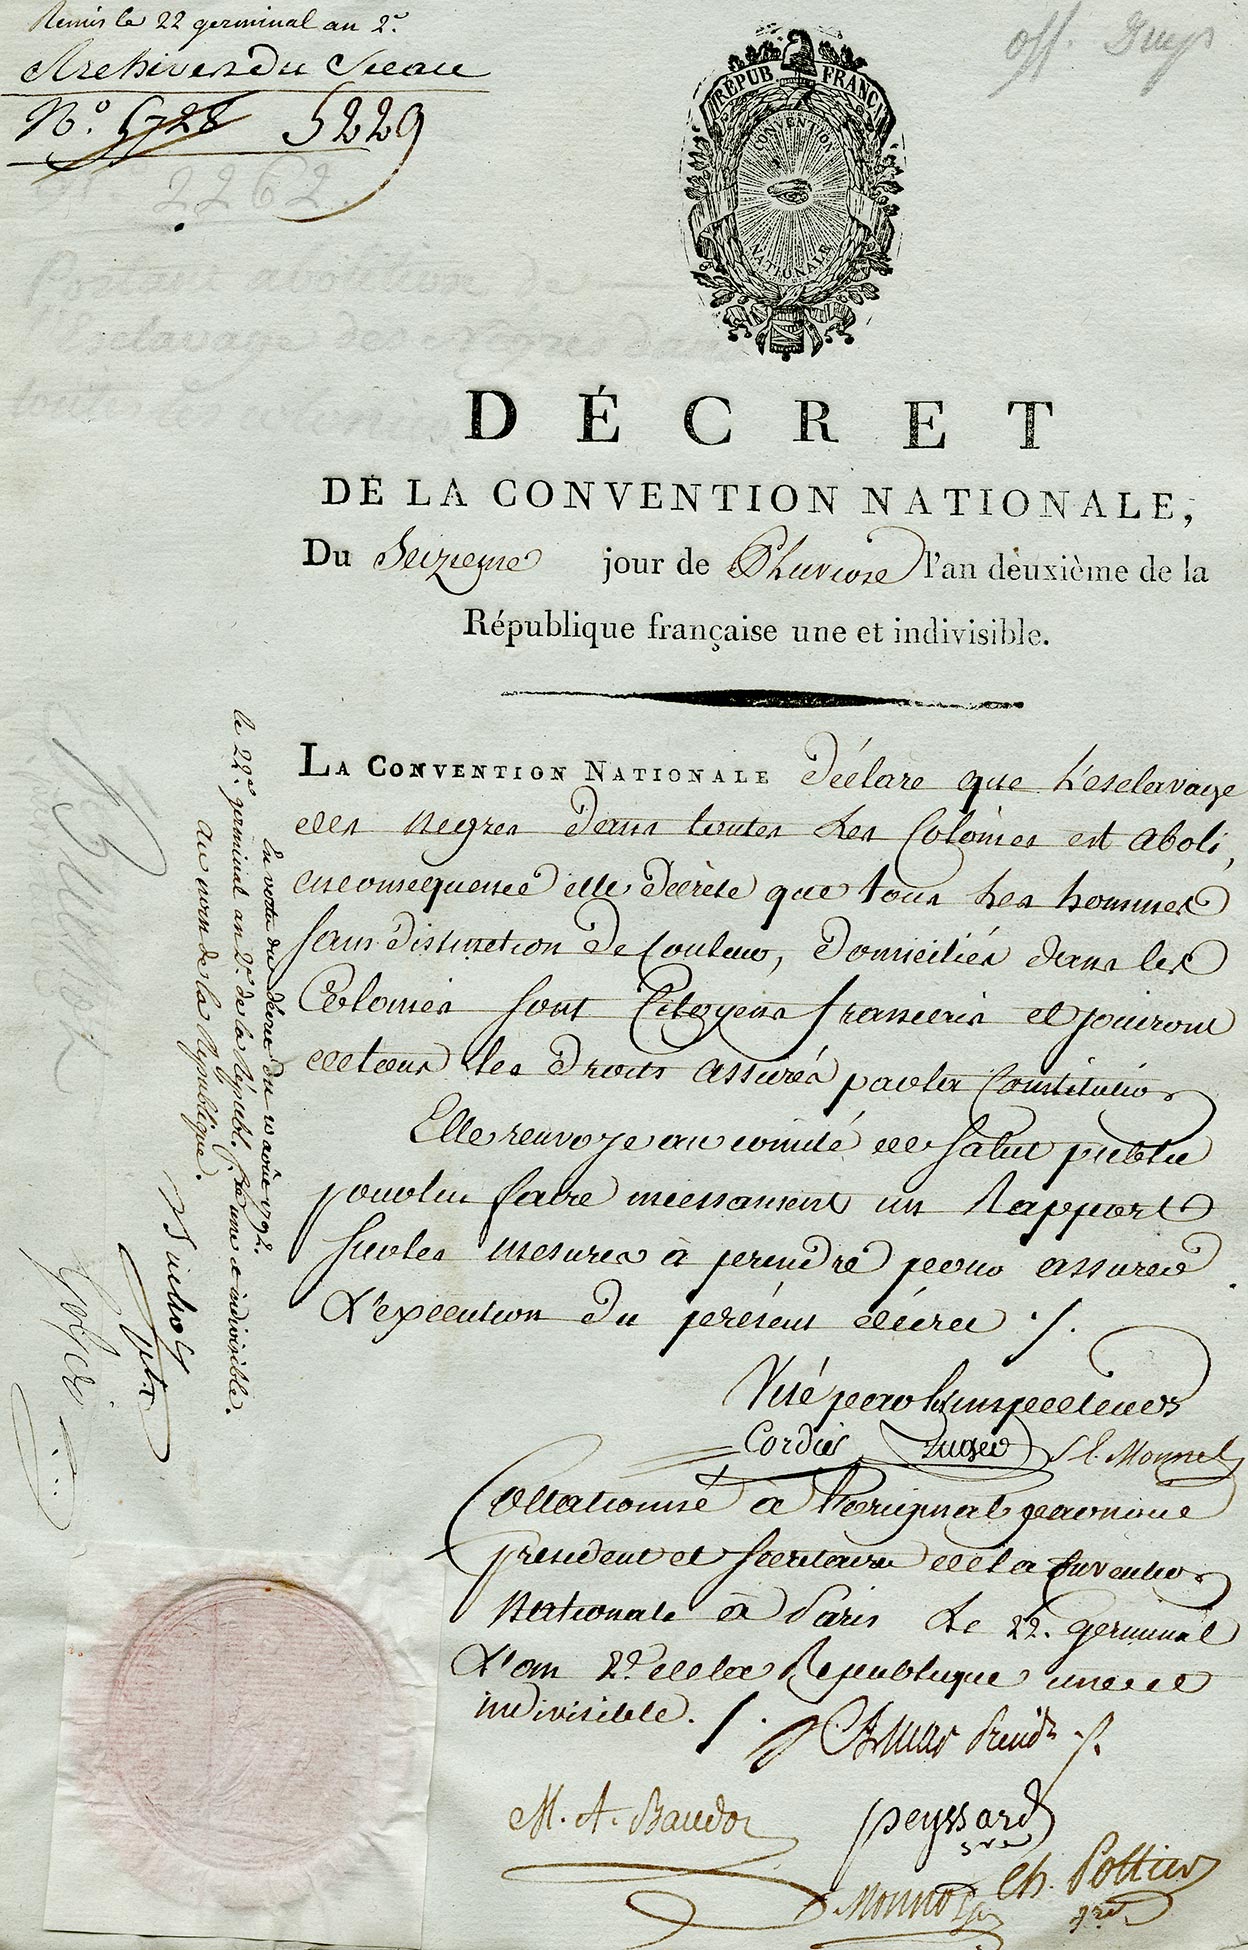 Remis le 22 germinal an 2e.
Archives du Sceau
N.o 5728 5229
off.
2262.
Portant abolition de
l'esclavage des Negres dans
toutes les colonies
RÉPUB FRANÇ
CONVENTION
NATIONALE
DÉCRET
DE LA CONVENTION NATIONALE,
Du Seizieme jour de Pluviose l'an deuxième de la
République française une et indivisible.
LA CONVENTION NATIONALE déclare que l'esclavage
des negres dans toutes les Colonies est aboli,
en consequence elle décrete que tous les hommes
sans distinction de couleur, domiciliés dans les
Colonies sont Citoyens francais et jouiront
de tous les droits assurés par la Constitution
Elle renvoye au comité de Salut public
pour lui faire incessament un Rapport
sur les mesures à prendre pour assurer
L'execution du présent décret ./.
Visé par les inspecteurs
Cordier Auger S. E. Monnel
Collationné a l'original par nous
president et secretaires de la Convention
Nationale à Paris Le 22. germinal
L'an 2e. de la Republique une et
indivisible. /.
Amar Présidt
M. A. Baudot
Peyssard
sre
Monnot
Ch. Pottier
sre
En vertu du décret du 10 août 1792.
le 22e. germinal an 2e. de la Republ. fse. une & indivisible.
Au nom de la République.
Buchot
Gohier